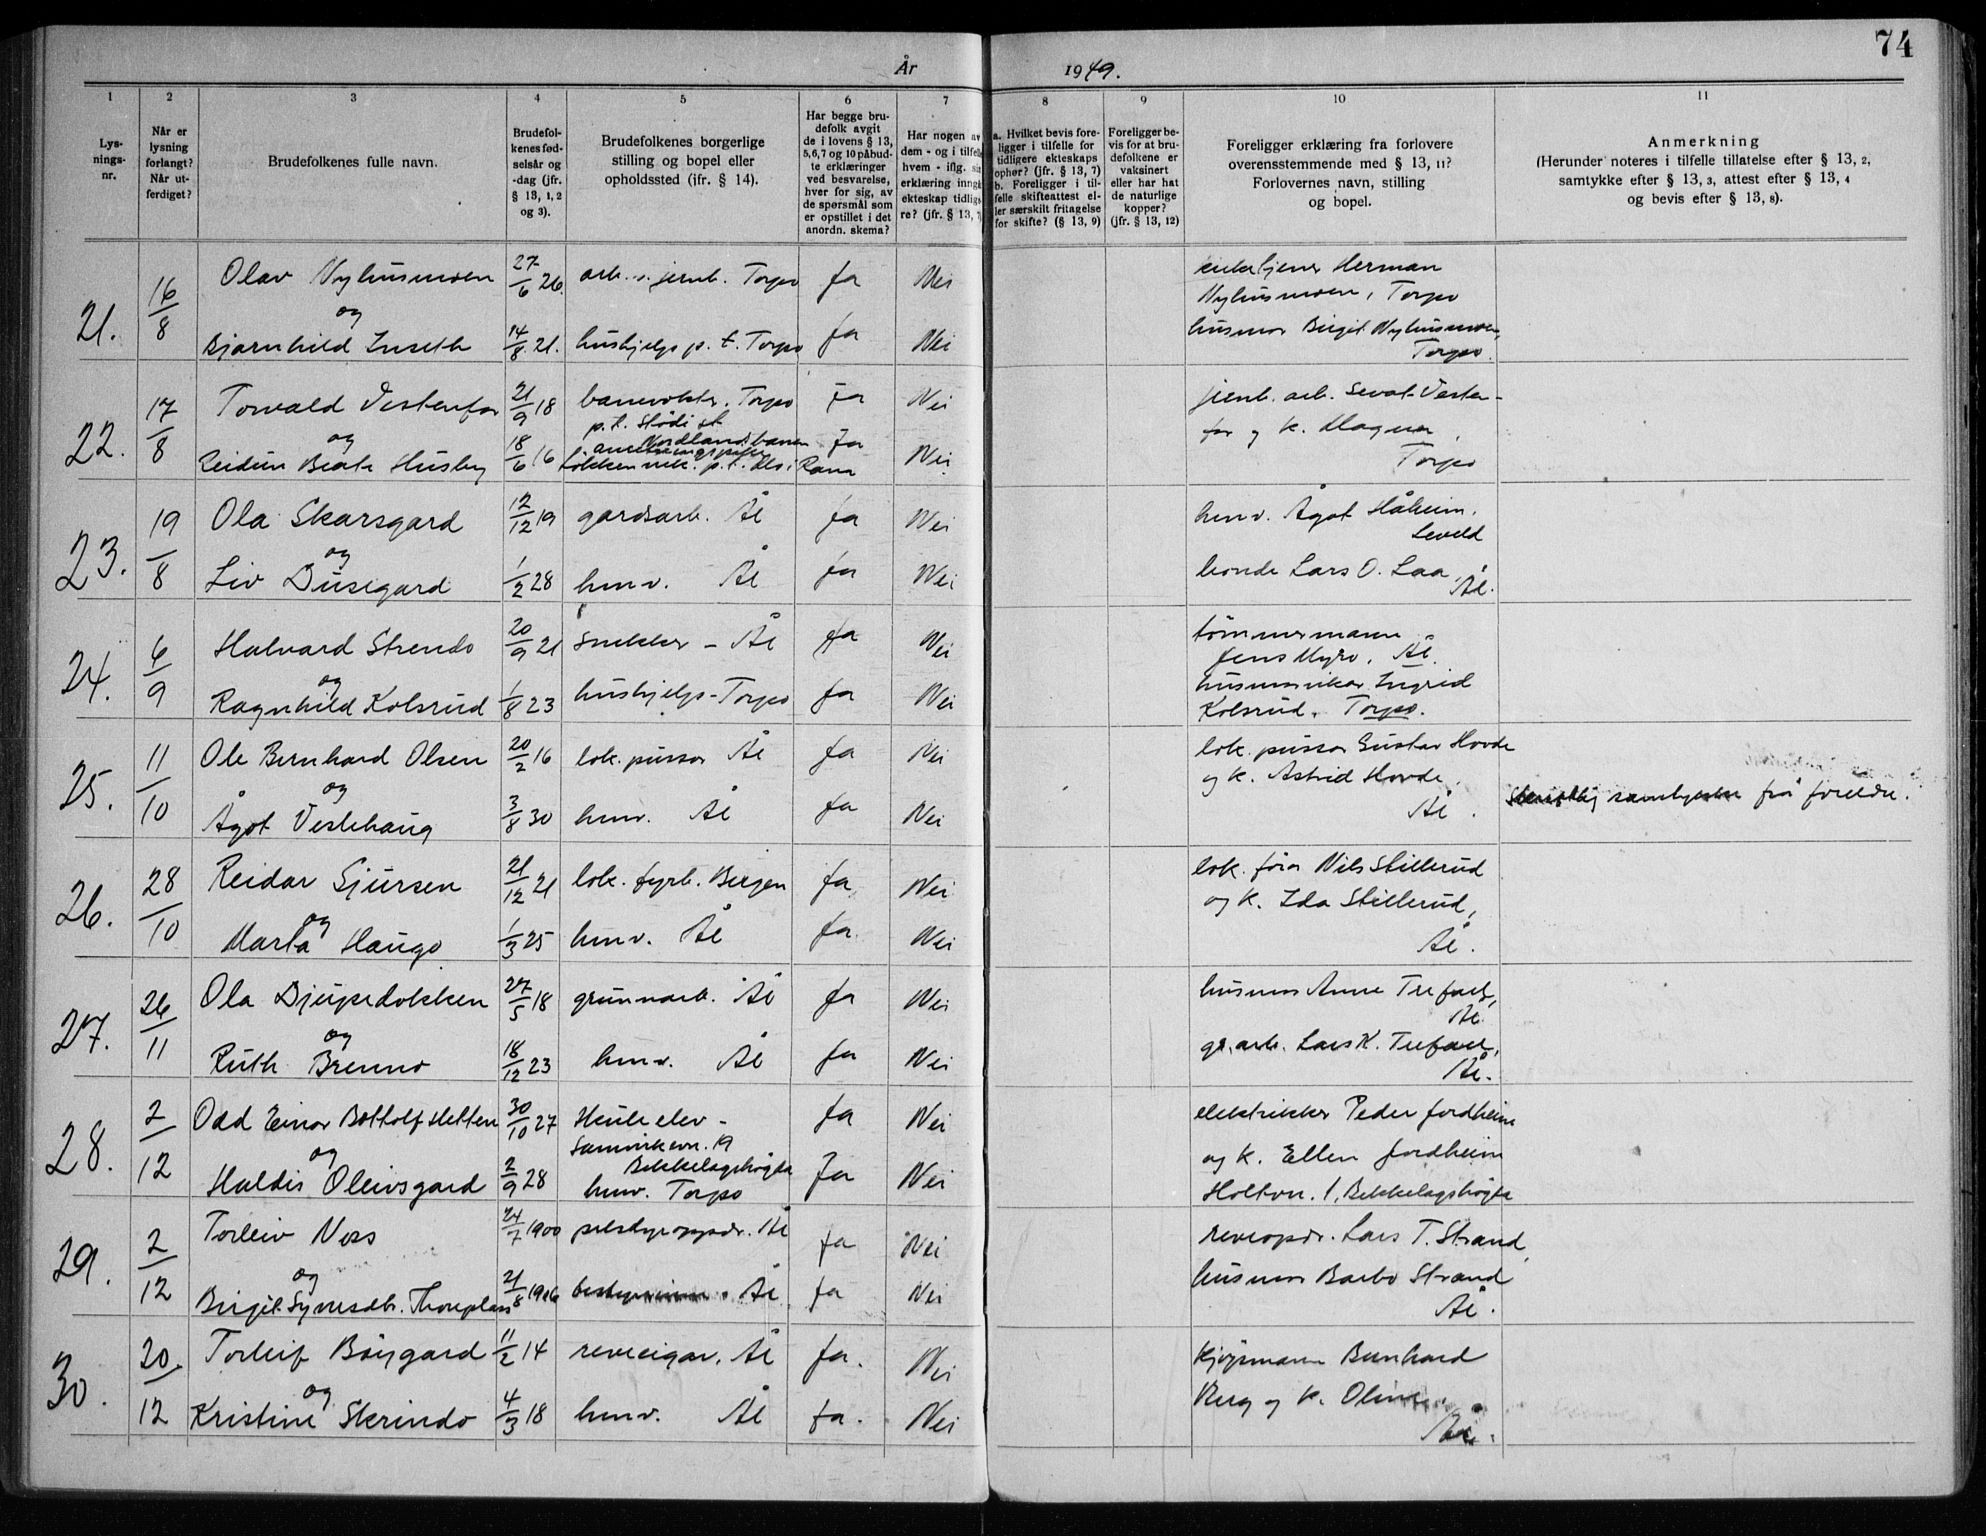 74
År 1949.
1 2 3 4 5 6 7 8 9 10 11
Lys-
nings-
nr.
Når er
lysning
forlangt?
Når ut-
ferdiget?
Brudefolkenes fulle navn.
Brudefol-
kenes fød-
selsår og
-dag (jfr.
§ 13, 1, 2
og 3).
Brudefolkenes borgerlige
stilling og bopel eller
opholdssted (jfr. § 14).
Har begge bru-
defolk avgit
de i lovens § 13,
5,6,7 og 10 påbud-
te erklæringer
ved besvarelse,
hver for sig, av
de spørsmål som
er opstillet i det
anordn. skema?
Har nogen av
dem - og i tilfelle
hvem - iflg. sin
erklæring inngå
ekteskap tidlig-
re? (jfr. § 13, 7)
a. Hvilket bevis fore-
ligger i tilfelle for
tidligere ekteskaps
ophør? (jfr. § 13, 7)
b. Foreligger i til-
felle skifteattest el-
ler særskilt fritagelse
for skifte? (§ 13, 9)
Foreligger be-
vis for at bru-
defolkene er
vaksinert
eller har hat
de naturlige
kopper?
(jfr. § 13, 12)
Foreligger erklæring fra forlovere
overensstemmende med § 13, 11?
Forlovernes navn, stilling
og bopel.
Anmerkning
(Herunder noteres i tilfelle tillatelse efter § 13, 2,
samtykke efter § 13, 3, attest efter § 13, 4
og bevis efter § 13, 8).
21. 16/8
Olav Nyhusmoen 27/6 26. arb. v. jernb. Torpo Ja Nei
og
Bjørnhild Inseth 14/8 21. hushjelp p. t. Torpo Ja Nei
Herman
Nyhusmoen, Torpo
husmor Birgit Nyhusmoen,
Torpo.
22. 17/8
Torvald Vestenfor 21/9 18 banevokter. Torpo Ja Nei
p.t. Stødi st
Nordlandsbanen
og
Beate Husby 18/6 16 p.t. i Rana Ja Nei
jernb. arb. Sevat Vesten-
for og k. Magna,
Torpo
23. 19/8
Ola Skarsgard 12/12 19 gardsarb. Ål Ja Nei
og
Liv Dusegard 1/2 28 hmv. Ål Ja Nei
hmv. Ågot Håheim,
Leveld
bonde Lars O. Laa,
Ål.
24. 6/9
Halvard Strendo 20/9 21 snekker - Ål Ja Nei
og
Ragnhild Kolsrud 1/8 23 hushjelp - Torpo Ja Nei
tömmermann
Jens Myro, Ål.
Ingrid
Kolsrud, Torpo.
25. 11/10
Ole Bernhard Olsen 20/2 16 lok. pusser Ål Ja Nei
og
Ågot Veslehaug 3/8 30 hmv. Ål Ja Nei
lok. pusser Gustav Hovde
og k. Astrid Hovde,
Ål.
Skriftlig samtykke frå foreldre.
26. 28/10
Reidar Sjursen 21/12 21 lok. fyrb. Bergen Ja Nei
og
Marta Haugo 1/3 25 hmv. Ål Ja Nei
lok. fører Nils Stillerud
og k. Ida Stillerud,
Ål.
27. 26/11
Ola Djupedokken 27/5 18 grunnarb. Ål Ja Nei
og
Ruth Brenno 18/12 23 hmv. Ål Ja Nei
husmor Anne Trefall,
Ål.
gr. arb. Lars K. Trefall,
Ål.
28. 2/12
Odd Einar Botholf Hetten 30/10 27 elev - Ja Nei
Samvirkevn. 19
Bekkelagshøgda
og
Haldis Oleivsgard 2/9 28 hmv. Torpo Ja Nei
elektriker Peder Jordheim
og k. Ellen Jordheim
Holtvn. 1, Bekkelagshøgda
29. 2/12
Torleiv Noss 24/7 1900 pelsdyroppdr. Ål Ja Nei
og
Birgit Syversdtr. Thoreplass 21/8 1916 bestyrerinne. Ål Ja Nei
reveopdr. Lars T. Strand,
husmor Barbo Strand
Ål.
30. 20/12
Torleif Böygard 11/2 14 reveeigar. Ål Ja. Nei
og
Kristine Skrindo 4/3 18 hmv. Ål Ja. Nei
Kjøpmann Bernhard
Berg og k. Oline
Ål.